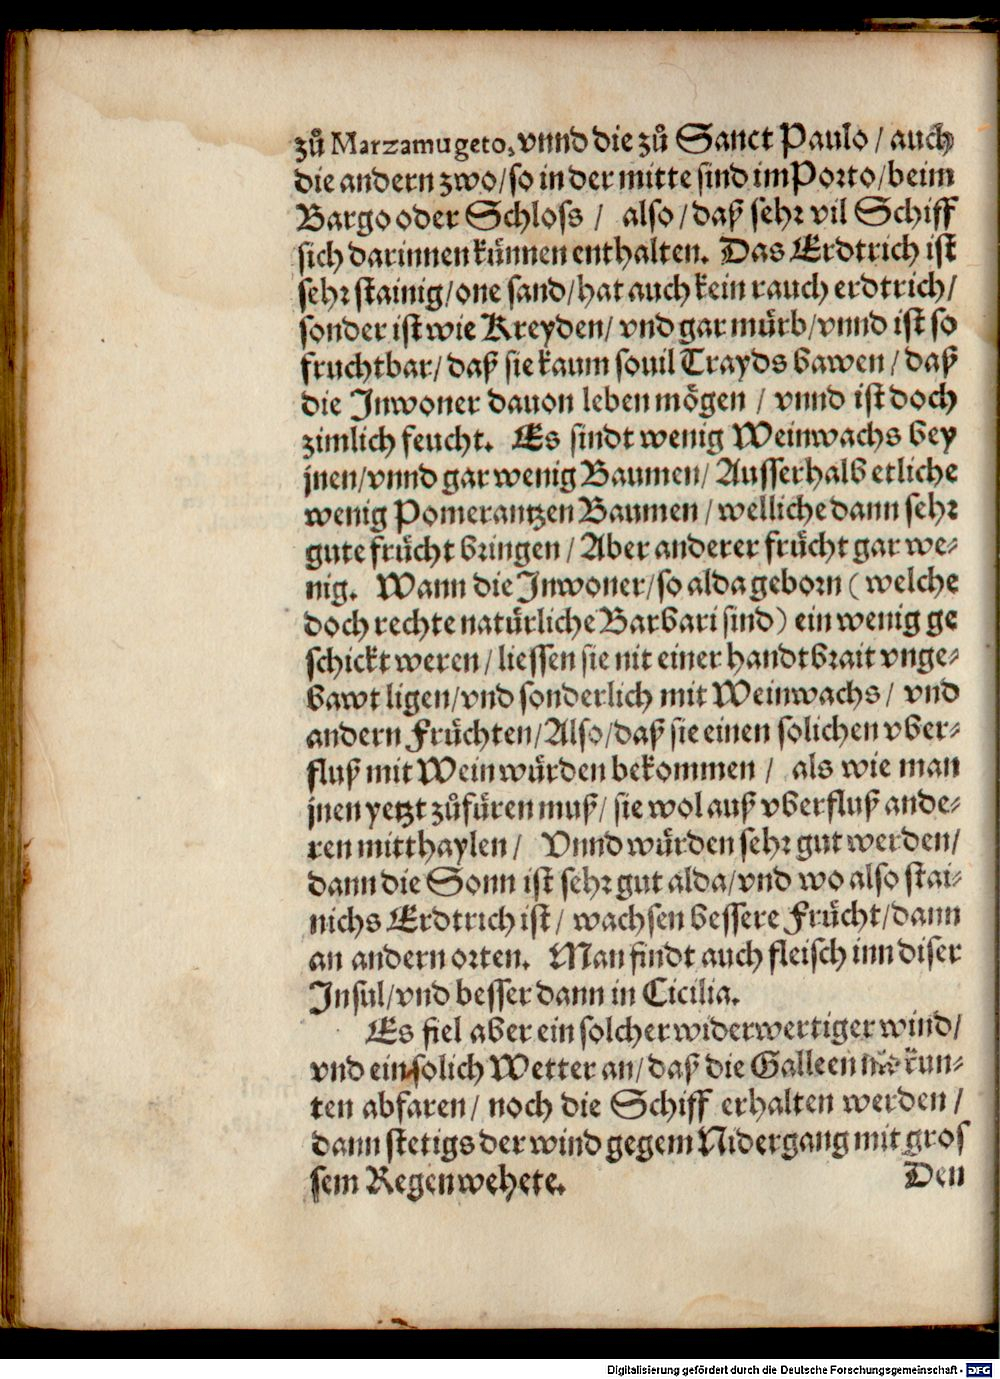 zů Marzamugeto, vnnd die zů Sanct Paulo / auch
die andern zwo/so in der mitte sind im Porto/beim
Bargo oder Schloss / also/daß sehr vil Schiff
sich darinnen künnen enthalten. Das Erdtrich ist
sehr stainig/one sand/hat auch kein rauch erdtrich/
sonder ist wie Kreyden/ vnd gar mürb/vnnd ist so
fruchtbar/ daß sie kaum souil Trayds bawen / daß
die Inwoner dauon leben mögen / vnnd ist doch
zimlich feucht. Es sindt wenig Weinwachs bey
jnen/vnnd gar wenig Baumen/ Ausserhalb etliche
wenig Pomerantzen Baumen / welliche dann sehr
gute frücht bringen / Aber anderer frücht gar we-
nig. Wann die Inwoner/so alda geborn (welche
doch rechte natürliche Barbari sind) ein wenig ge
schickt weren / liessen sie nit einer handtbrait vnge-
bawt ligen/vnd sonderlich mit Weinwachs / vnd
andern Früchten/Also/daß sie einen solichen vber-
fluß mit Wein würden bekommen / als wie man
jnen yetzt zůfüren muß/ sie wol auß vberfluß ande-
ren mitthaylen / Vnnd würden sehr gut werden/
dann die Sonn ist sehr gut alda/vnd wo also stai-
nichs Erdtrich ist / wachsen bessere Frücht/dann
an andern orten. Man findt auch fleisch inn diser
Insul/vnd besser dann in Cicilia.
Es fiel aber ein solcher widerwertiger wind/
vnd ein solich Wetter an/daß die Galleen nit kun-
ten abfaren / noch die Schiff erhalten werden /
dann stetigs der wind gegem Nidergang mit gros
sem Regen wehete. Den
Digitalisierung gefördert durch die Deutsche Forschungsgemeinschaft - DFG